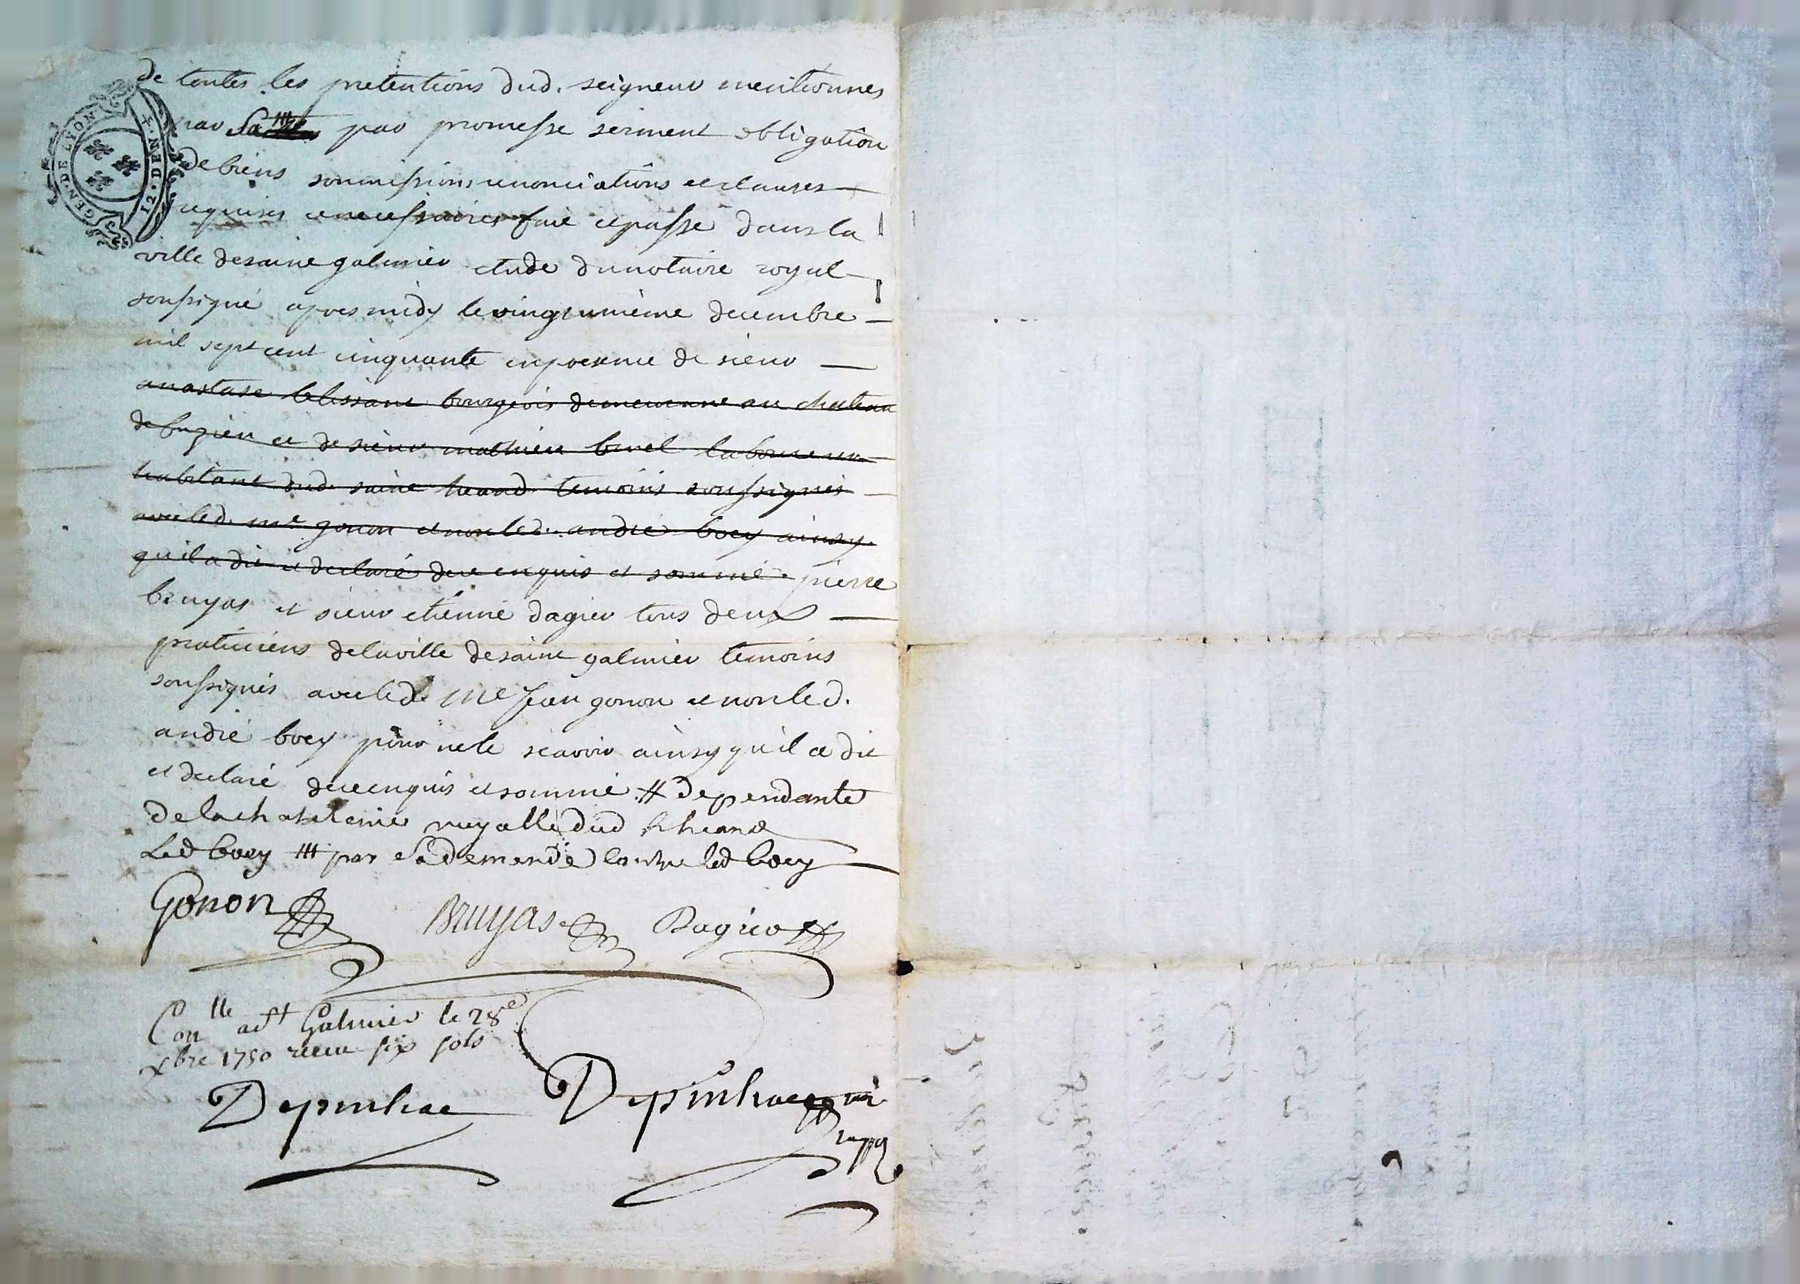 GEN. DE LYON
12. DEN.
de toutes les pretentions dud. seigneur mentionnes
par sa ### par promesse serment obligation
de biens soumissions renonciations et clauses
requises et necessaires fait et passé dans la
ville de saint galmier etude du notaire royal
soussigné apres midy le vingtunième decembre
mil sept cent cinquante en presence de sieur
anastase blissant bourgeois demeurant au chateau
de fugieu et de sieur mathieu burel laboureur
habitant dud. saint heand temoins soussignés
avec led. me gonon et non led. andré boey ainsy
qu'il a dit et declaré de ce enquis et sommé pierre
bruyas et sieur etienne dagier tous deux
praticiens de la ville de saint galmier temoins
soussignés avec led. me Jean gonon et non led.
andré boey pour ne le scavoir ainsy qu'il a dit
et declaré de ce enquis et sommé. # dependante
de la chatelenie royalle dud st heand
Led boey ### par sa demende contre led boey
Gonon Bruyas Dagier
Conlle a st Galmier le 28e
xbre 1750 receu six sols
Depinhac Depinhac